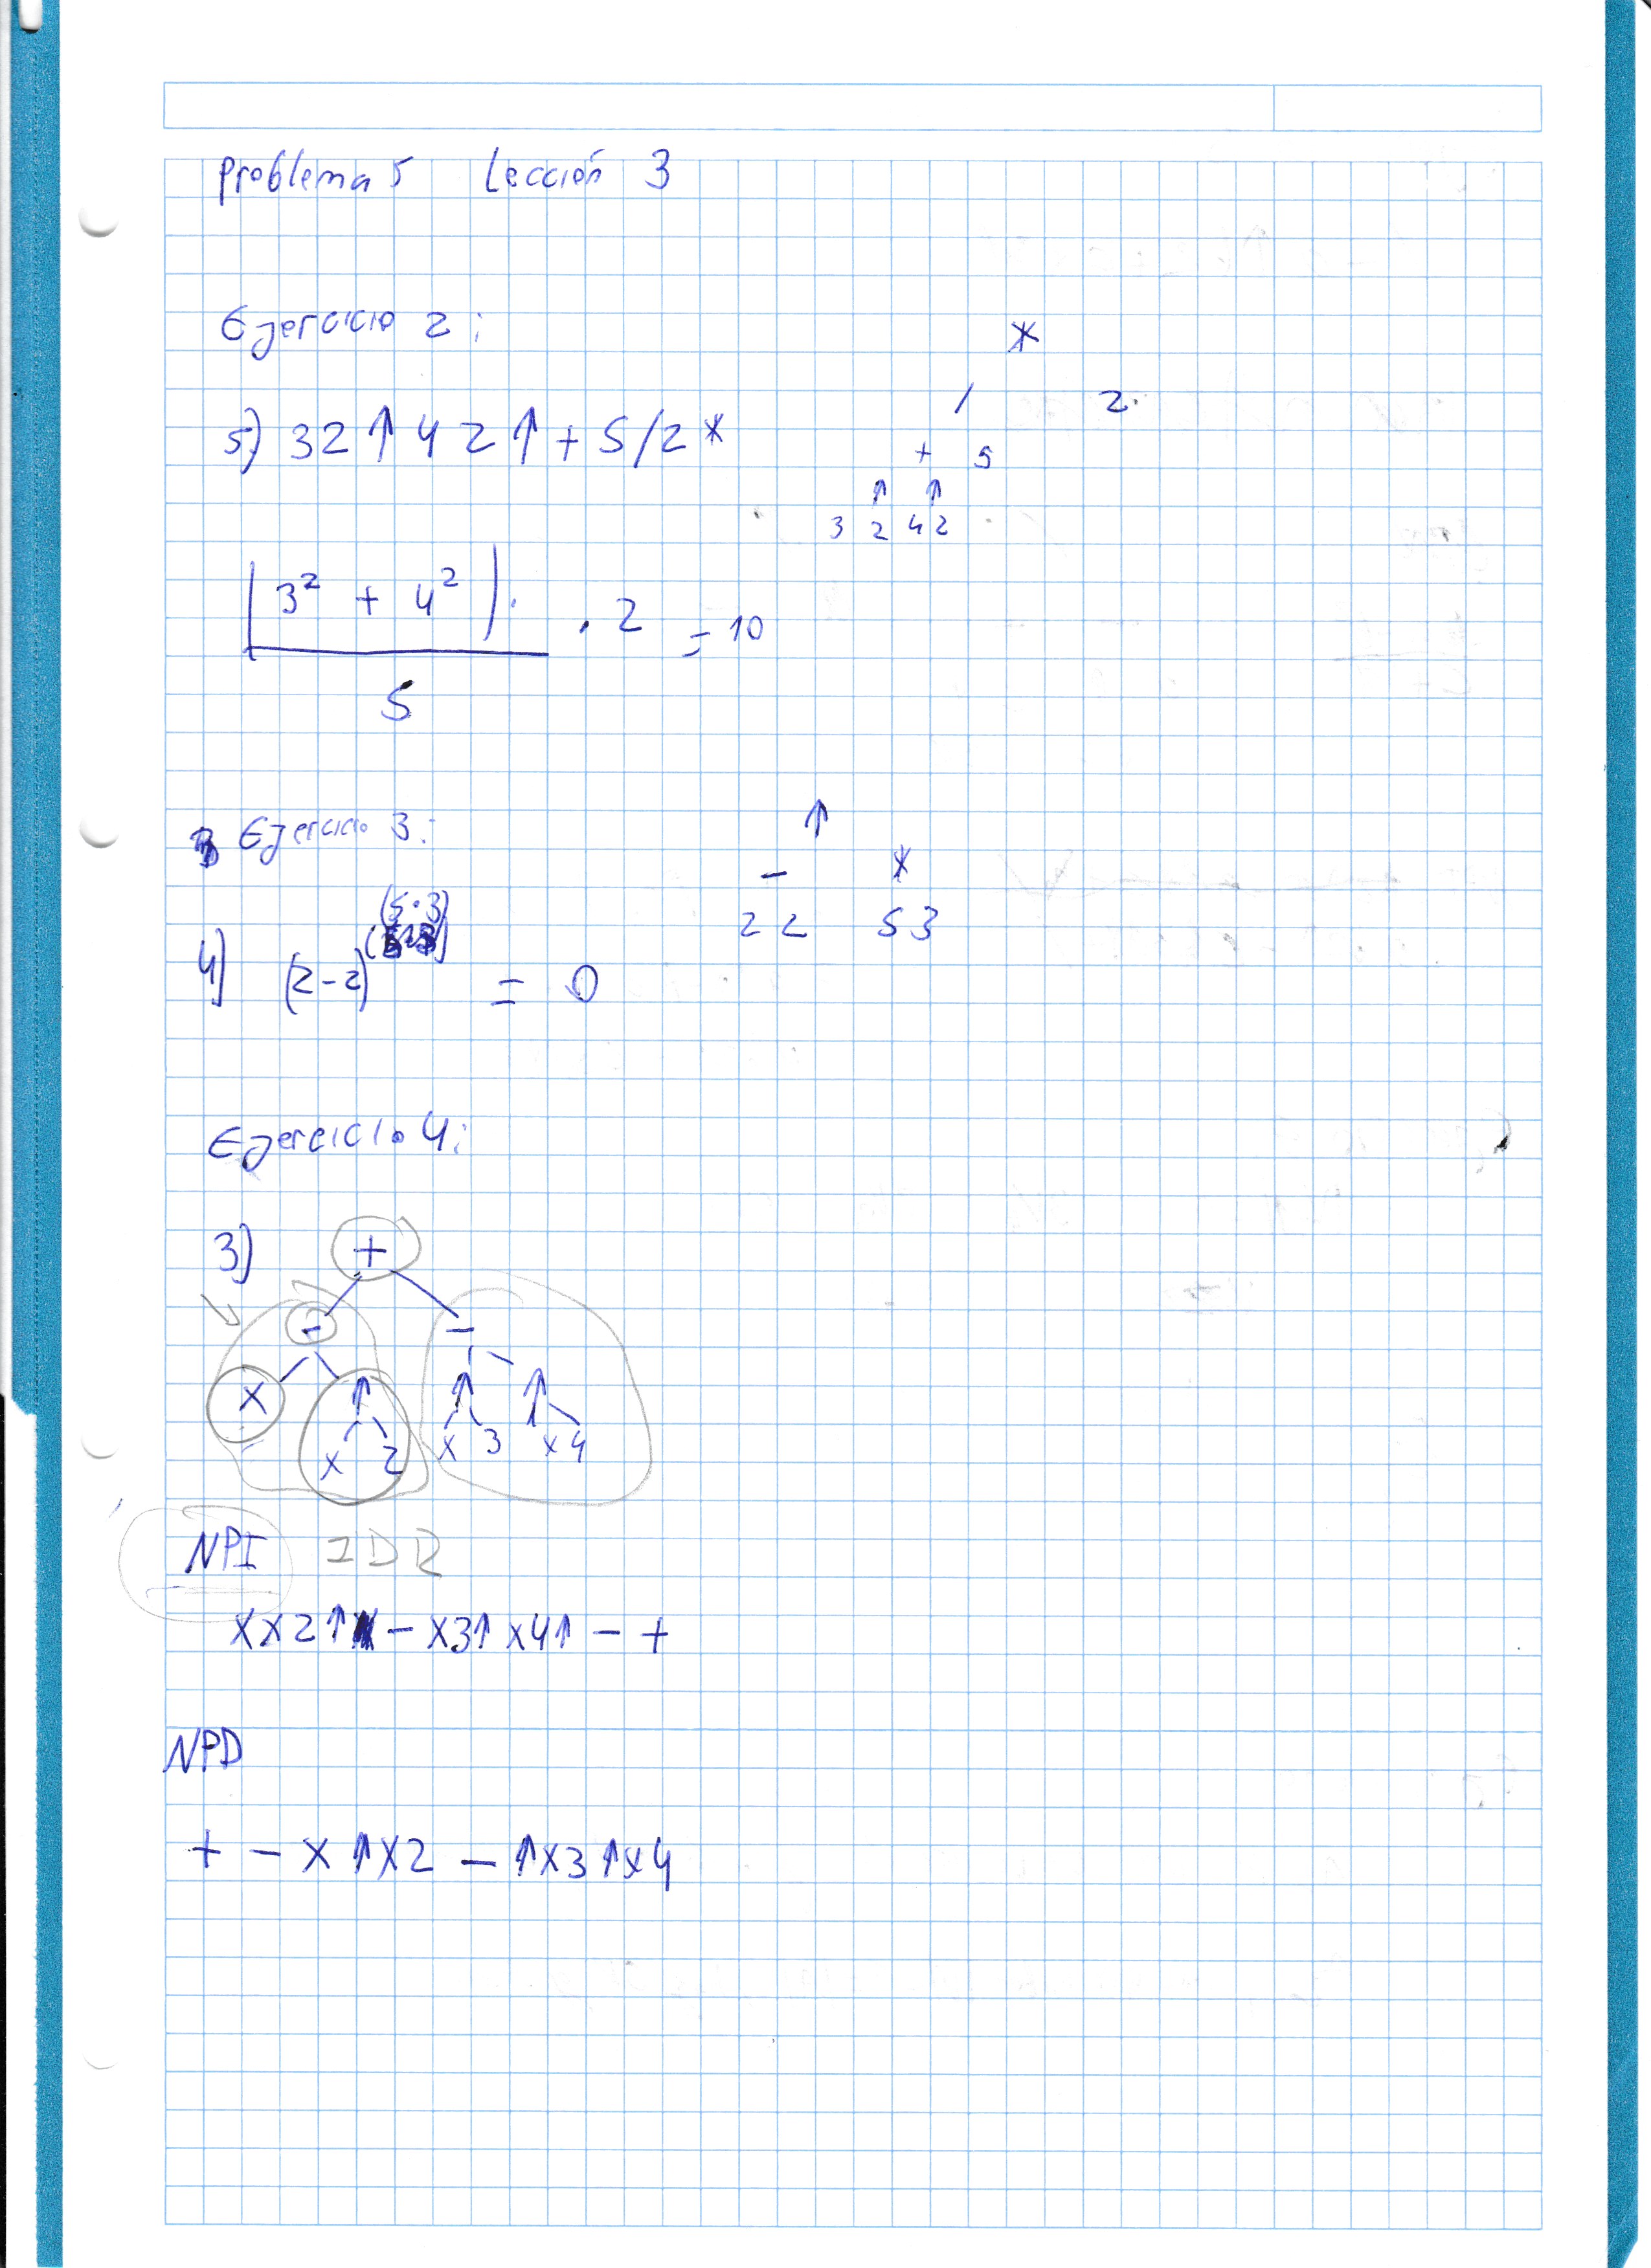 Problema 5 Lección 3
Ejercicio 2:
*
/ 2
5) 3 2 ↑ 4 2 ↑ + 5 / 2 *
+ 5
↑ ↑
3 2 4 2
(3² + 4²) . 2 = 10
5
Ejercicio 3:
↑
- *
2 2 5 3
4) (2-2)^(5·3) = 0
Ejercicio 4:
3) +
- -
x ↑ ↑ ↑
x 2 x 3 x 4
NPI IDR
x x 2 ↑ - x 3 ↑ x 4 ↑ - +
NPD
+ - x ↑ x 2 - ↑ x 3 ↑ x 4